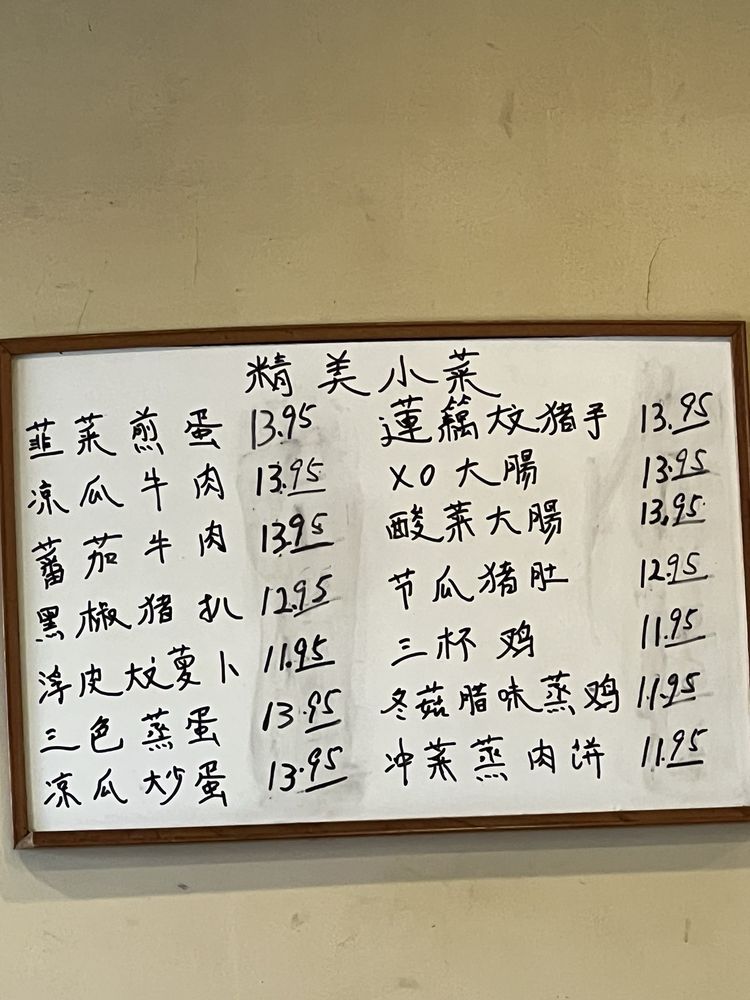 精美小菜
韮菜煎蛋 13.95
凉瓜牛肉 13.95
蕃茄牛肉 13.95
黑椒猪扒 12.95
浮皮炆萝卜 11.95
三色蒸蛋 13.95
凉瓜炒蛋 13.95
蓮藕炆猪手 13.95
XO大腸 13.95
酸菜大腸 13.95
节瓜猪肚 12.95
三杯鸡 11.95
冬菇腊味蒸鸡 11.95
冲菜蒸肉饼 11.95